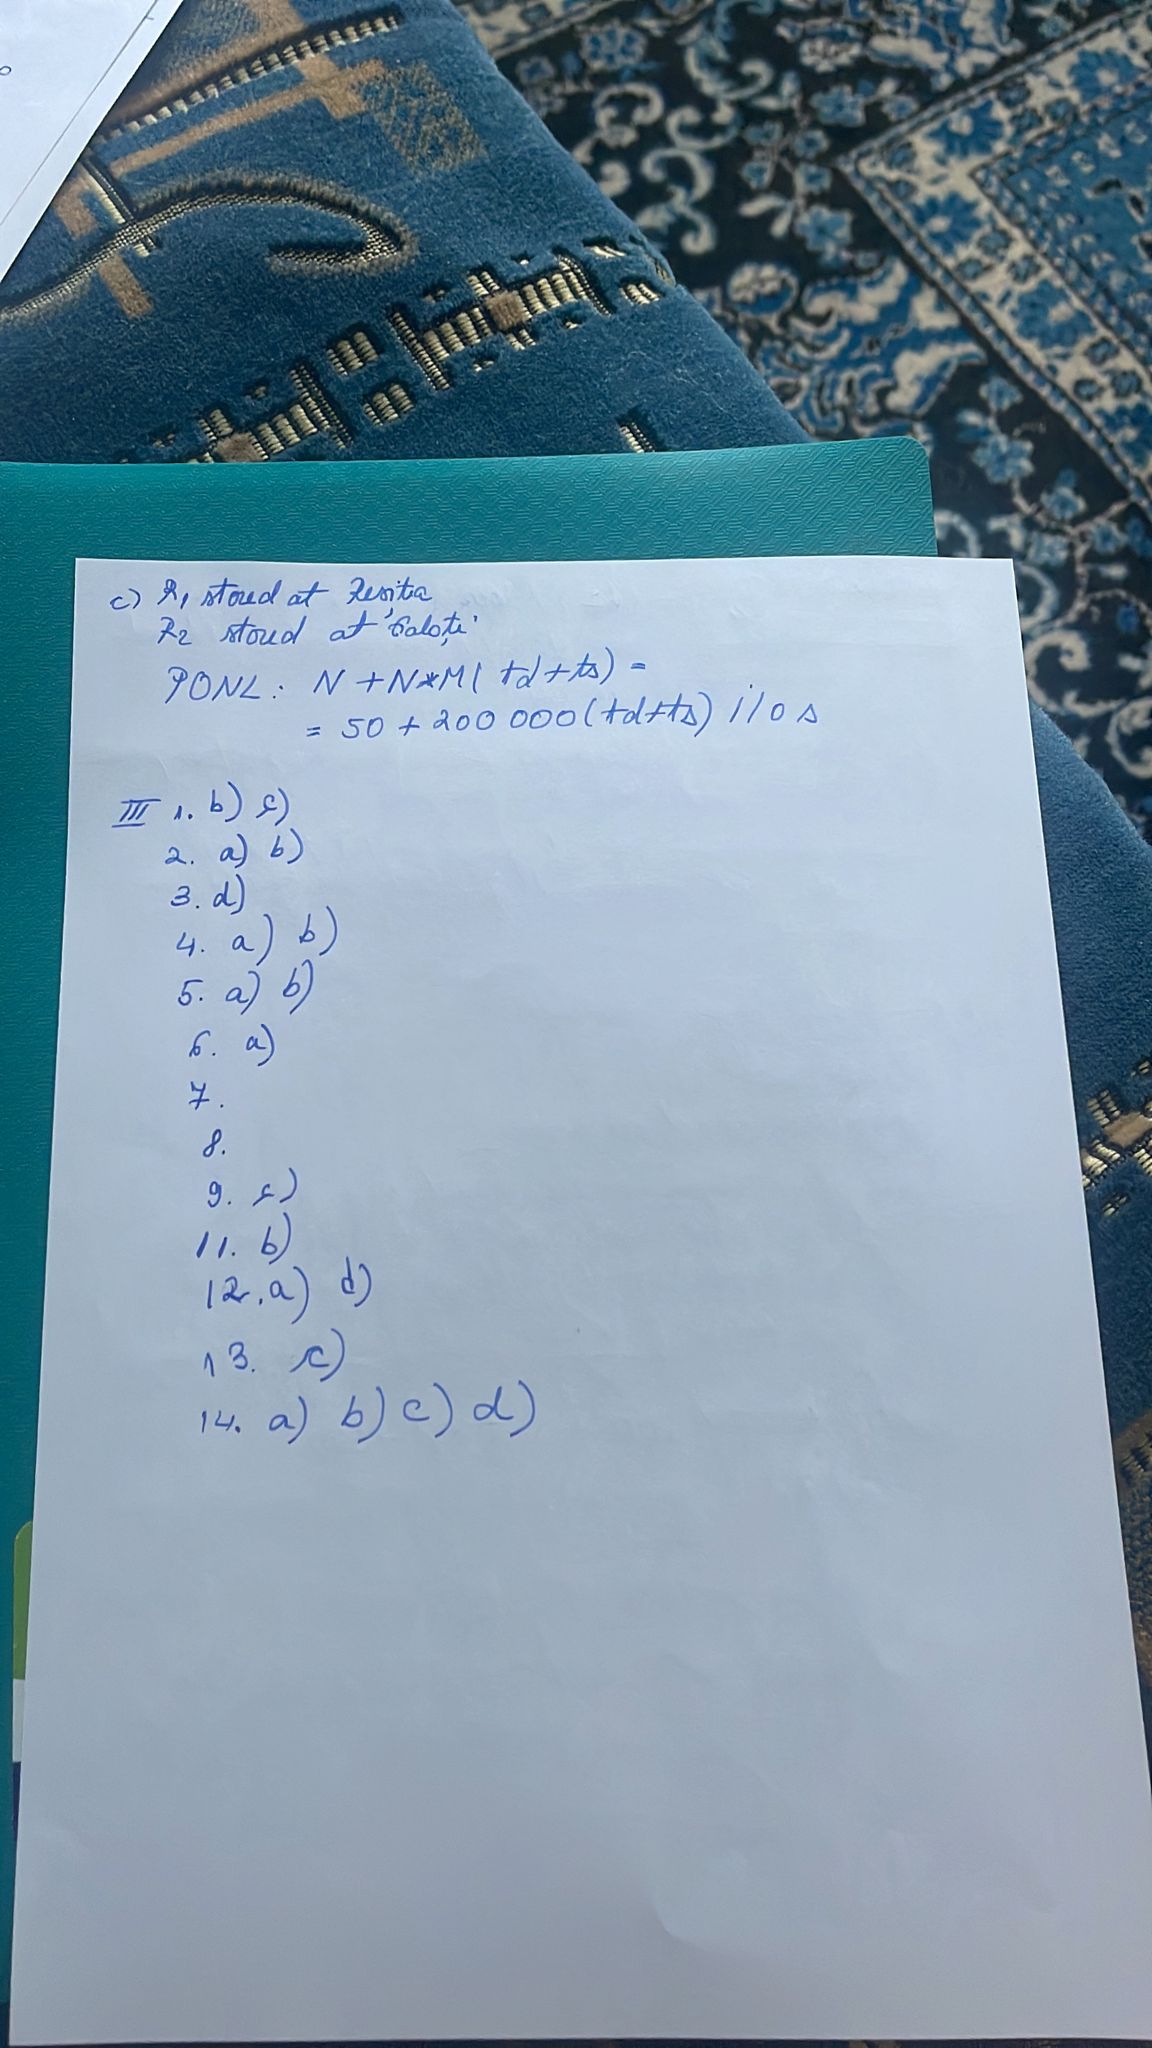 c) R1 stored at Resita
R2 stored at Galați
PONL: N + N*M ( td + ts) =
= 50 + 200 000 (td+ts) i/o s
III 1. b) c)
2. a) b)
3. d)
4. a) b)
5. a) b)
6. a)
7.
8.
9. c)
11. b)
12. a) d)
13. c)
14. a) b) c) d)